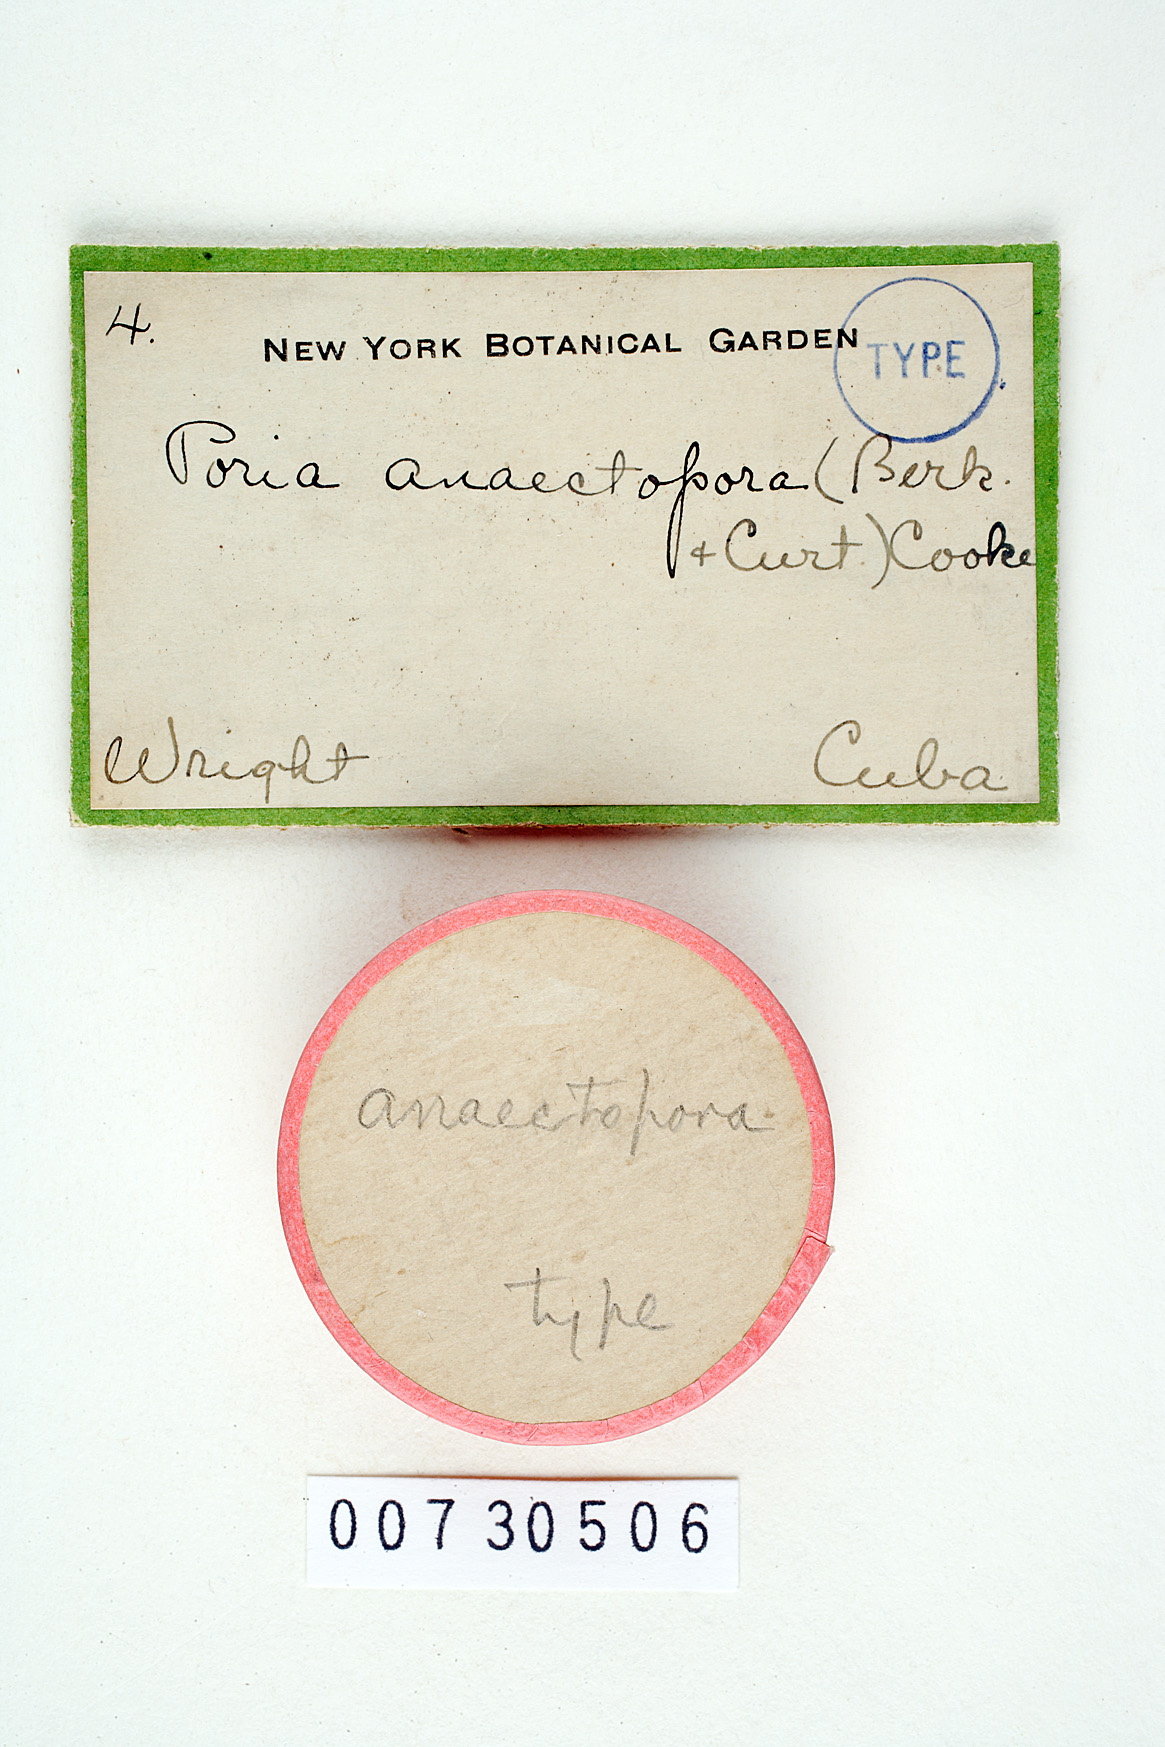 4.
NEW YORK BOTANICAL GARDEN
TYPE
Poria anaectopora (Berk.
+ Curt.) Cooke
Wright
Cuba
anaectopora
type
00730506